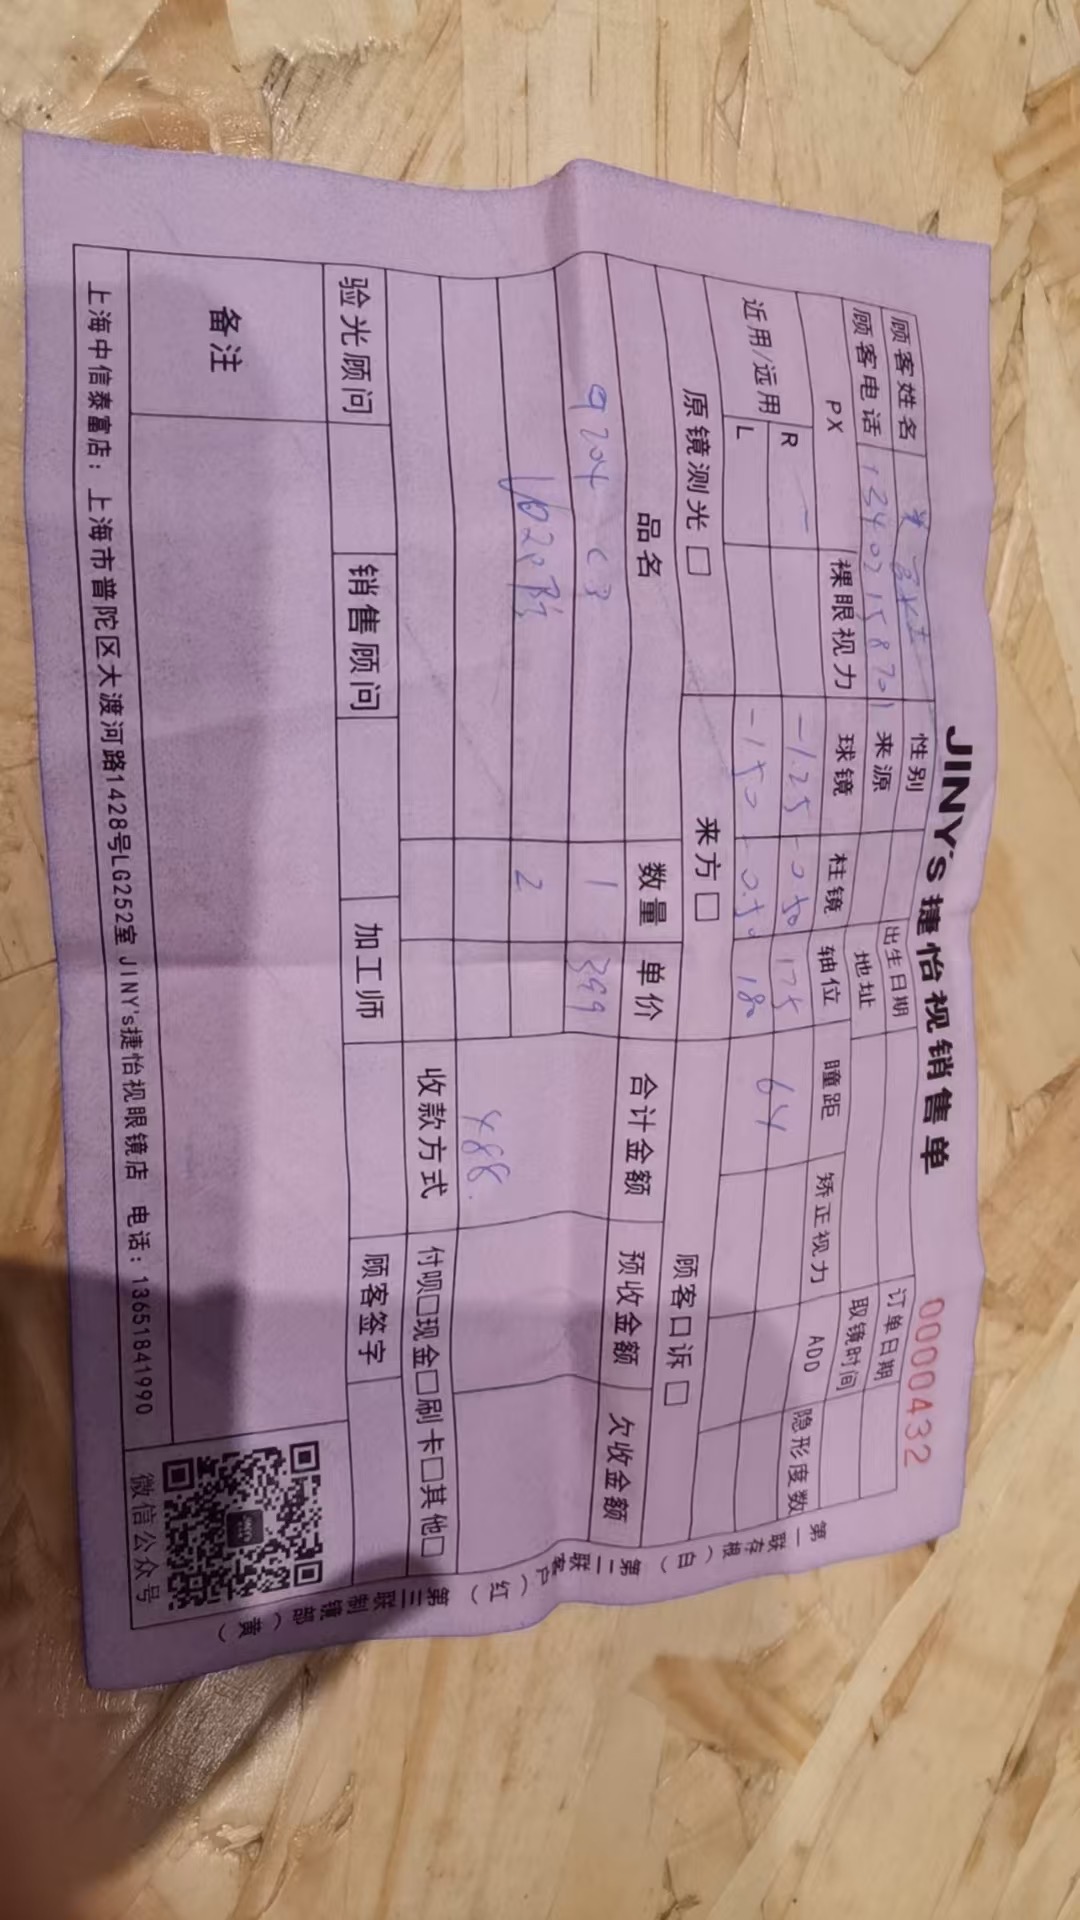 JINY's 捷怡视销售单 0000432
顾客姓名 性别 出生日期 订单日期
顾客电话 13402158701 来源 地址 取镜时间
PX 裸眼视力 球镜 柱镜 轴位 瞳距 矫正视力 ADD 隐形度数
近用/远用 R -1.25 -0.50 175 64
L -1.50 -0.50 180
原镜测光□ 来方□ 顾客口诉□
品名 数量 单价 合计金额 预收金额 欠收金额
9204 C3 1 399 488
2
收款方式 付呗□现金□刷卡□其他□
验光顾问 销售顾问 加工师 顾客签字
备注
上海中信泰富店：上海市普陀区大渡河路1428号LG252室 JINY's捷怡视眼镜店 电话：13651841990
微信公众号
第一联存根（白） 第二联客户（红） 第三联制镜部（黄）